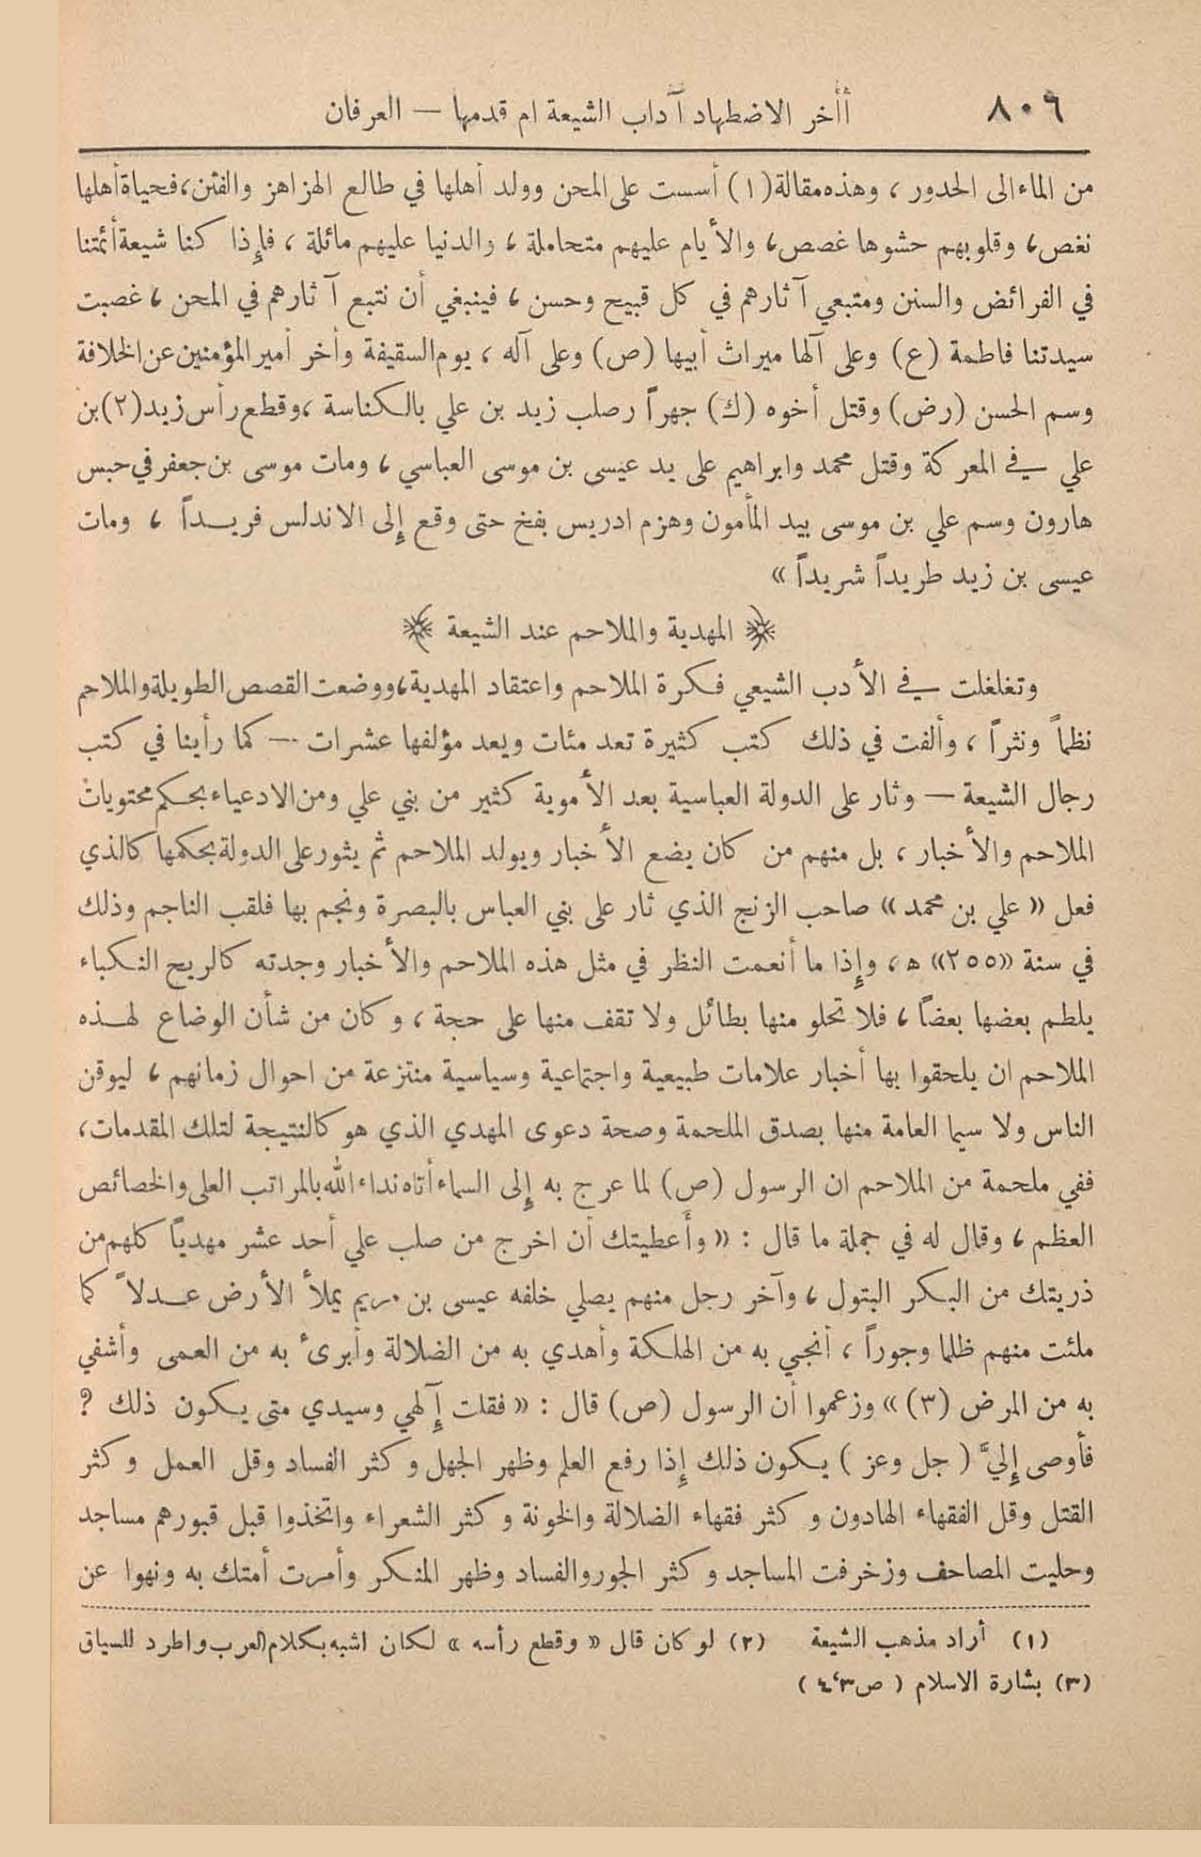 ٨٠٦ أأخر الاضطهاد آداب الشيعة ام قدمها — العرفان
من الماء الى الحدور ، وهذه مقالة (١) أسست على المحن وولد أهلها في طالع الهزاهز والفتن، فحياة أهلها
نغص ، وقلوبهم حشوها غصص ، والأيام عليهم متحاملة ، والدنيا عليهم مائلة ، فإذا كنا شيعة أئمتنا
في الفرائض والسنن ومتبعي آثارهم في كل قبيح وحسن ، فينبغي أن نتبع آثارهم في المحن ، غصبت
سيدتنا فاطمة (ع) وعلى آلها ميراث أبيها (ص) وعلى آله ، يوم السقيفة وأخر أمير المؤمنين عن الخلافة
وسم الحسن (رض) وقتل أخوه (ك) جهراً رصلب زيد بن علي بالكناسة ، وقطع رأس زيد (٢) بن
علي في المعركة وقتل محمد وابراهيم على يد عيسى بن موسى العباسي ، ومات موسى بن جعفر في حبس
هارون وسم علي بن موسى بيد المأمون وهزم ادريس بفخ حتى وقع إلى الاندلس فريداً ، ومات
عيسى بن زيد طريداً شريداً »
﴿ المهدية والملاحم عند الشيعة ﴾
وتغلغلت في الأدب الشيعي فكرة الملاحم واعتقاد المهدية ، ووضعت القصص الطويلة والملاحم
نظماً ونثراً ، وألفت في ذلك كتب كثيرة تعد مئات ويعد مؤلفها عشرات — كما رأينا في كتب
رجال الشيعة — وثار على الدولة العباسية بعد الأموية كثير من بني علي ومن الادعياء بحكم محتويات
الملاحم والأخبار ، بل منهم من كان يضع الأخبار ويولد الملاحم ثم يثور على الدولة بحكمها كالذي
فعل « علي بن محمد » صاحب الزنج الذي ثار على بني العباس بالبصرة ونجم بها فلقب الناجم وذلك
في سنة «٢٥٥» ه ، وإذا ما أنعمت النظر في مثل هذه الملاحم والأخبار وجدته كالريح النكباء
يلطم بعضها بعضاً ، فلا تحلو منها بطائل ولا تقف منها على حجة ، وكان من شأن الوضاع لهذه
الملاحم ان يلحقوا بها أخبار علامات طبيعية واجتماعية وسياسية منتزعة من احوال زمانهم ، ليوقن
الناس ولا سيما العامة منها بصدق الملحمة وصحة دعوى المهدي الذي هو كالنتيجة لتلك المقدمات ،
ففي ملحمة من الملاحم ان الرسول (ص) لما عرج به إلى السماء أتاه نداء الله بالمراتب العلى والخصائص
العظم ، وقال له في جملة ما قال : « وأعطيتك أن اخرج من صلب علي أحد عشر مهدياً كلهم من
ذريتك من البكر البتول ، وآخر رجل منهم يصلي خلفه عيسى بن مريم يملأ الأرض عدلاً كما
ملئت منهم ظلما وجوراً ، أنجي به من الهلكة وأهدي به من الضلالة وأبرئ به من العمى وأشفي
به من المرض (٣) » وزعموا أن الرسول (ص) قال : « فقلت إآلهي وسيدي متى يكون ذلك ؟
فأوصى إليَّ ( جل وعز ) يكون ذلك إذا رفع العلم وظهر الجهل وكثر الفساد وقل العمل وكثر
القتل وقل الفقهاء الهادون وكثر فقهاء الضلالة والخونة وكثر الشعراء واتخذوا قبل قبورهم مساجد
وحليت المصاحف وزخرفت المساجد وكثر الجور والفساد وظهر المنكر وأمرت أمتك به ونهوا عن
(١) أراد مذهب الشيعة (٢) لو كان قال « وقطع رأسه » لكان اشبه بكلام العرب واطرد للسياق
(٣) بشارة الاسلام ( ص٣،٤ )